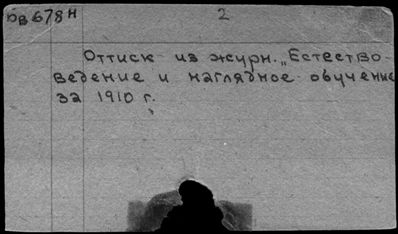 Бв678н 2
Оттиск из журн. „Естество-
ведение и наглядное обучение
за 1910 г.